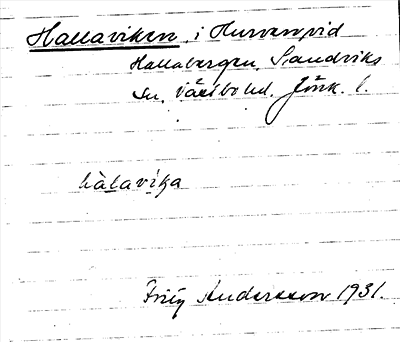 Hallaviken i Hurven, vid
Hallabergen, Sandviks
sn. Västbo hd. Jönk. l.
hàlavika
Andersson 1931.